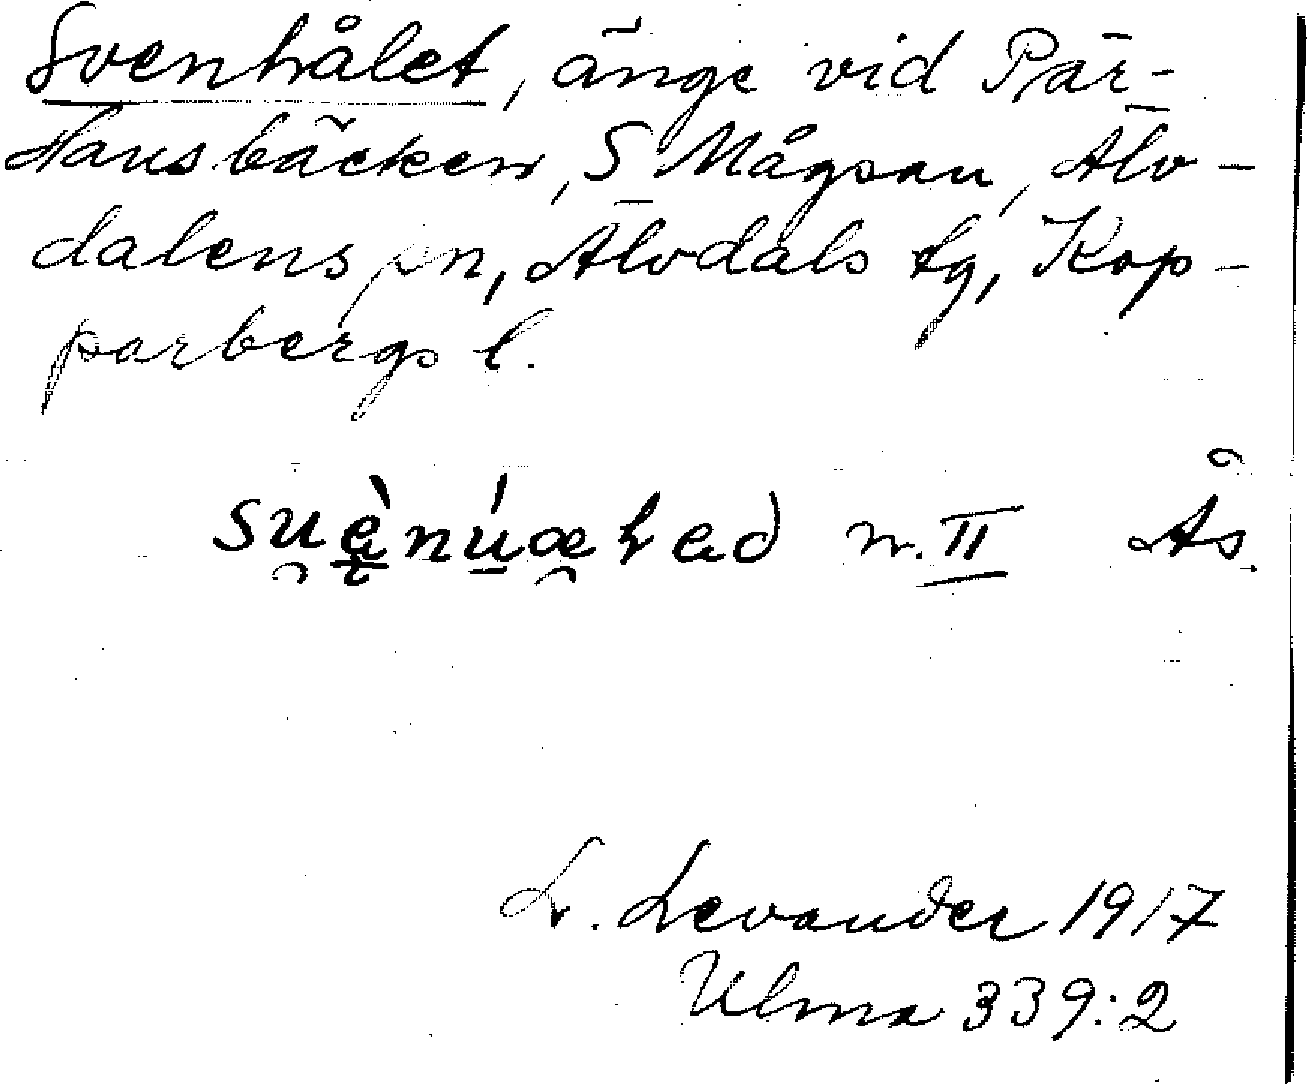 Svenhålet, änge vid Pär-
Hansbäcken, S Mågsau, Älv-
dalens sn, Älvdals tg, Kop-
parbergs l.
n. II Ås.
L. Levander 1917
Ulma 339:2